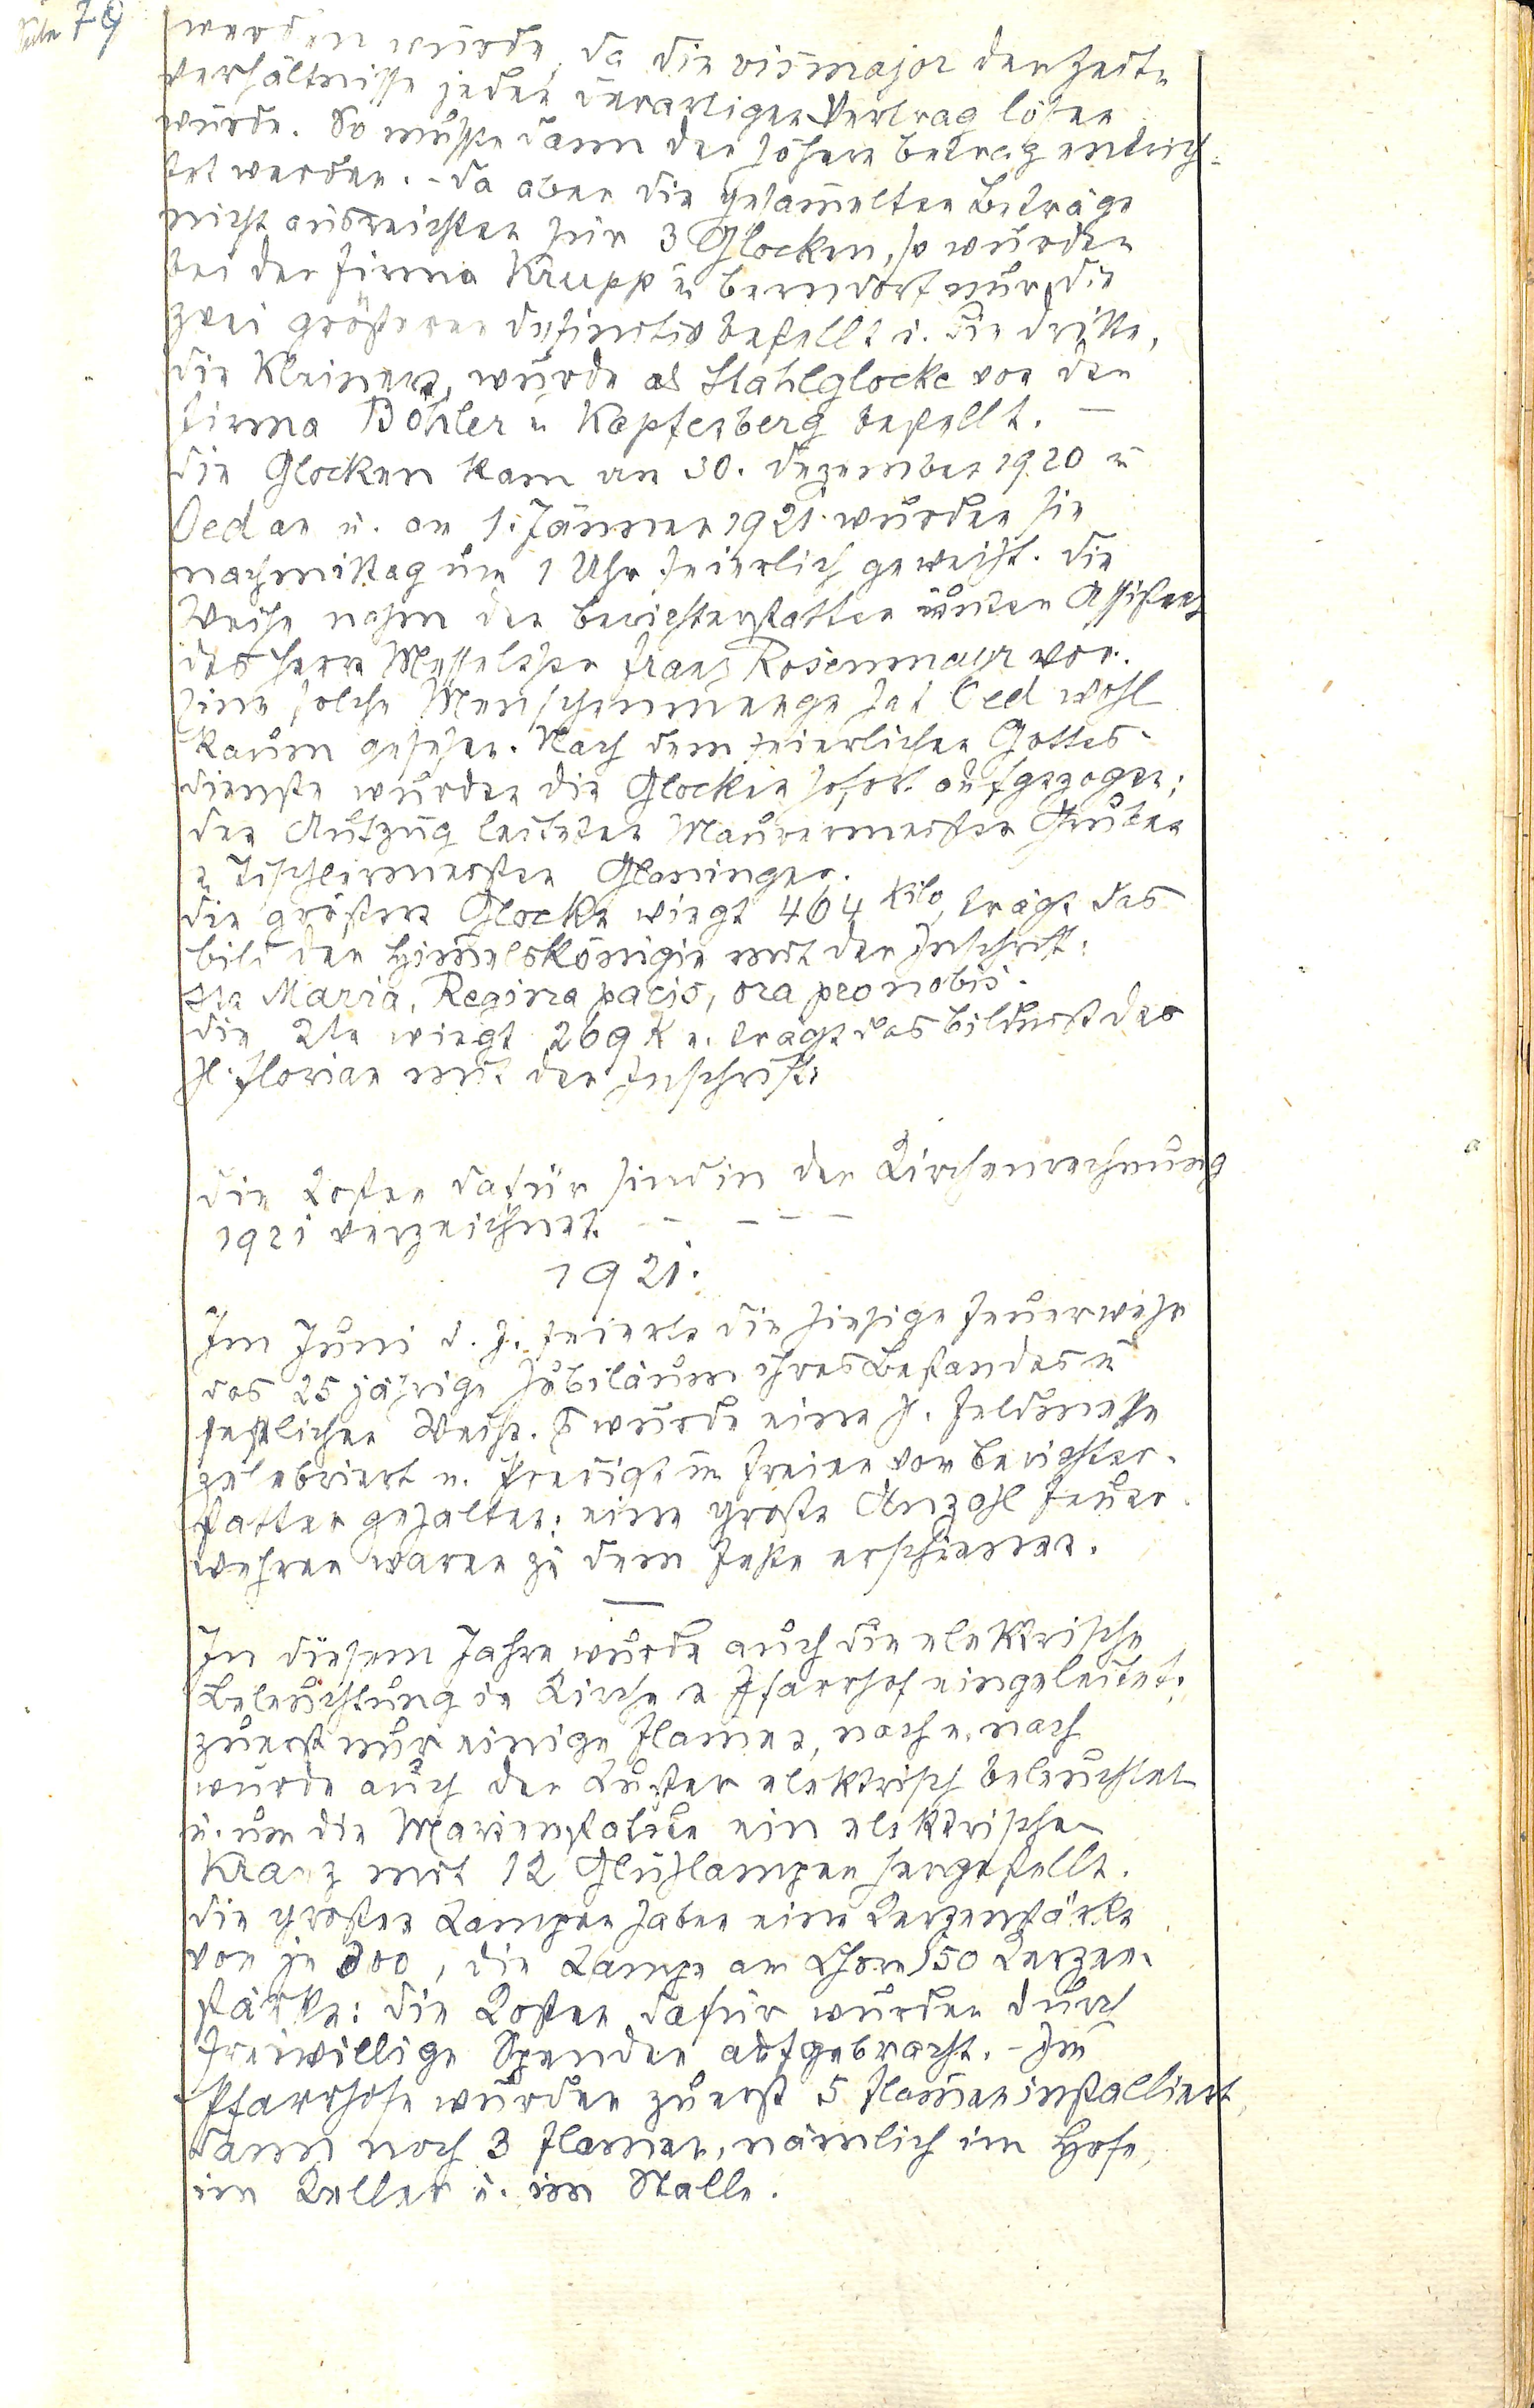 Seite 79
werden würde, da die vis major der Zeit-
verhältnisse jeden derartigen Vertrag lösen
würde. So mußte dann der höhere Betrag entrich-
tet werden. - Da aber die gesam̄elten Beträge
nicht ausreichten für 3 Glocken, so wurden
bei der Firma Krupp in Berndorf nur die
zwei größeren definitiv bestellt u. die dritte,
die kleinere, wurde als Stahlglocke von der
Firma Böhler in Kapfenberg bestellt. —
Die Glocken kam am 30. Dezember 1920 in
Oed an u. am 1. Jänner 1921 wurden sie
nachmittag um 1 Uhr feierlich geweiht. Die
Weihe nahm der Berichterstatter unter Assistenz
des Herrn Messelehr Franz Rosenmayr vor.
Eine solche Menschenmenge hat Oed wohl
kaum gesehen. Nach dem feierlichen Gottes-
dienste wurden die Glocken sofort aufgezogen;
den Aufzug leiteten Maurermeister Gruber
u Tischlermeister Gloninger.
Die größere Glocke wiegt 464 Kilo, trägt das
Bild der Him̄elskönigin mit der Inschrift:
Sta Maria, Regina pacis, ora pro nobis.
Die 2te wiegt 269 K u. trägt das Bildnis des
hl. Florian mit der Inschrift:
Die Kosten dafür sind in der Kirchenrechnung
1921 verzeichnet. - - - -
1921.
Im Juni d. J. feierte die hiesige Feuerwehr
das 25 jährige Jubiläum ihres Bestandes in
festlicher Weise. Es wurde eine hl. Feldmesse
zelebriert u. Predigt im Freien vom Berichter-
statter gehalten; eine große Anzahl Feuer-
wehren waren zu dem Feste erschienen.
In diesem Jahre wurde auch die elektrische
Beleuchtung in Kirche u Pfarrhof eingeleitet;
zuerst nur einige Flam̄en, nach u. nach
wurde auch der Luster elektrisch beleuchtet
u. um die Marienstatue ein elektrischer
Kranz mit 12 Glühlampen hergestellt.
Die großen Lampen haben eine Kerzenstärke
von je 300, die Lampe am Chore 150 Kerzen-
stärke: die Kosten dafür wurden durch
freiwillige Spenden aufgebracht. - Im
Pfarrhofe wurden zuerst 5 Flam̄en installiert,
dann noch 3 Flamen, nämlich im Hofe,
im Keller u. im Stalle.